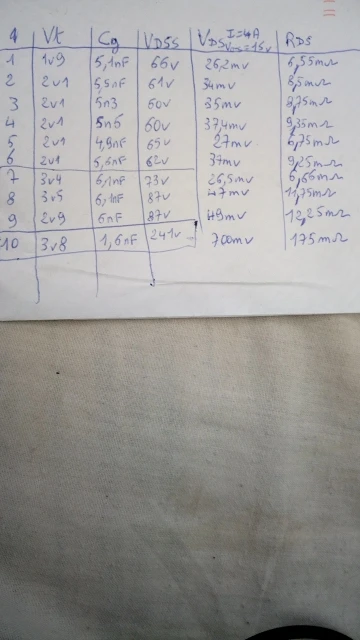 Vt Cg VDSS VDS I=4A VGS=15V RDS
1 1v9 5,1nF 66v 26,2mv 6,55mΩ
2 2v1 5,5nF 61v 34mv 8,5mΩ
3 2v1 5n3 60v 35mv 8,75mΩ
4 2v1 5n5 60v 37,4mv 9,35mΩ
5 2v1 4,9nF 65v 27mv 6,75mΩ
6 2v1 5,6nF 62v 37mv 9,25mΩ
7 3v4 6,1nF 73v 26,5mv 6,66mΩ
8 3v5 6,1nF 87v 47mv 11,75mΩ
9 2v9 6nF 87v 49mv 12,25mΩ
10 3v8 1,6nF 241v 700mv 175mΩ